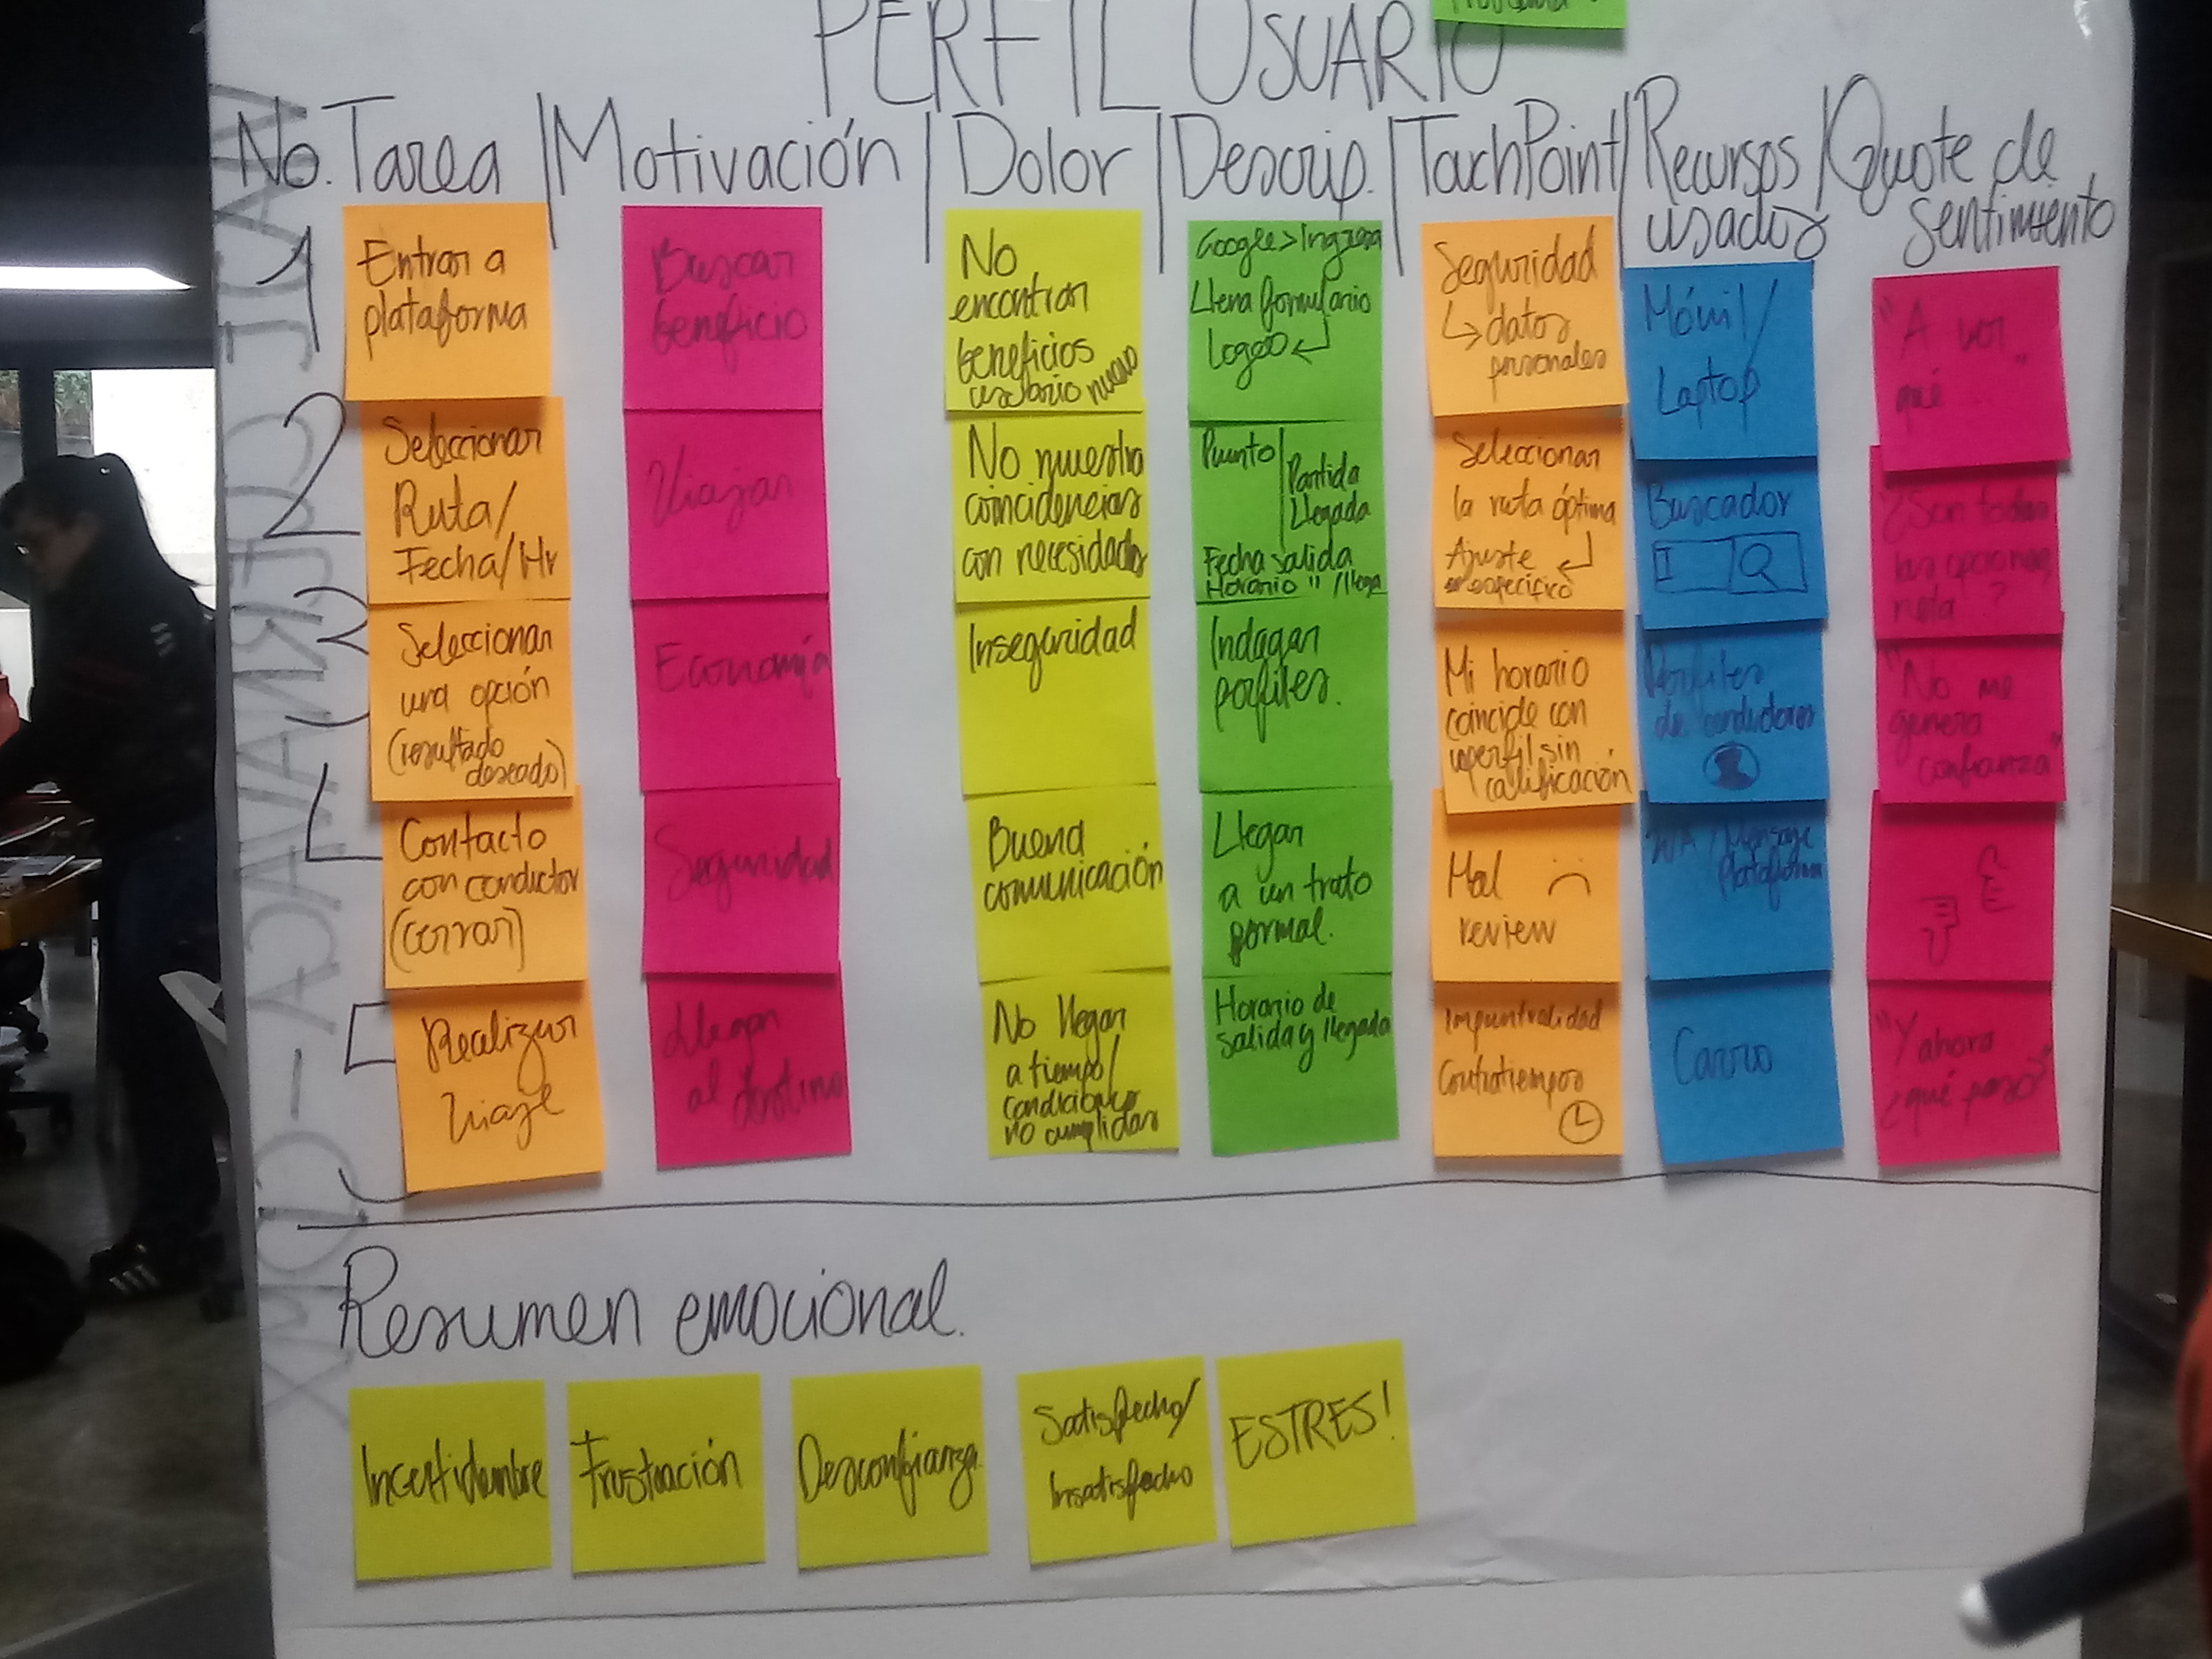 PERFIL USUARIO
No. Tarea | Motivación | Dolor | Descrip. | TachPoint | Recursos usados | Quote de sentimiento
1
Entrar a
plataforma
Buscar
beneficio
No
encontrar
beneficios
usuario nuevo
Google > Ingresa
Llena formulario
Logeo
Seguridad
datos
personales
Móvil/
Laptop
"A ver
qué"
2
Seleccionar
Ruta/
Fecha/Hr
Viajar
No muestra
coincidencias
con necesidades
Punto | Partida
Llegada
Fecha salida
Horario " /llega
Seleccionar
la ruta óptima
Ajuste
específico
Buscador
¿Son todas
las opciones,
nota?
3
Seleccionar
una opción
(resultado
deseado)
Economía
Inseguridad
Indagar
perfiles.
Mi horario
coincide con
perfil sin
calificación
Perfiles
de conductores
"No me
genera
confianza"
4
Contacto
con conductor
(cerrar)
Seguridad
Buena
comunicación
Llegar
a un trato
formal.
Mal
review
WA / Mensaje
Plataforma
5
Realizar
Viaje
Llegar
al destino
No llegar
a tiempo/
condiciones
no cumplidas
Horario de
salida y llegada
Impuntualidad
Contratiempos
Carro
"Y ahora
¿qué paso?"
Resumen emocional.
Incertidumbre
Frustración
Desconfianza
Satisfecho/
Insatisfecho
ESTRES!